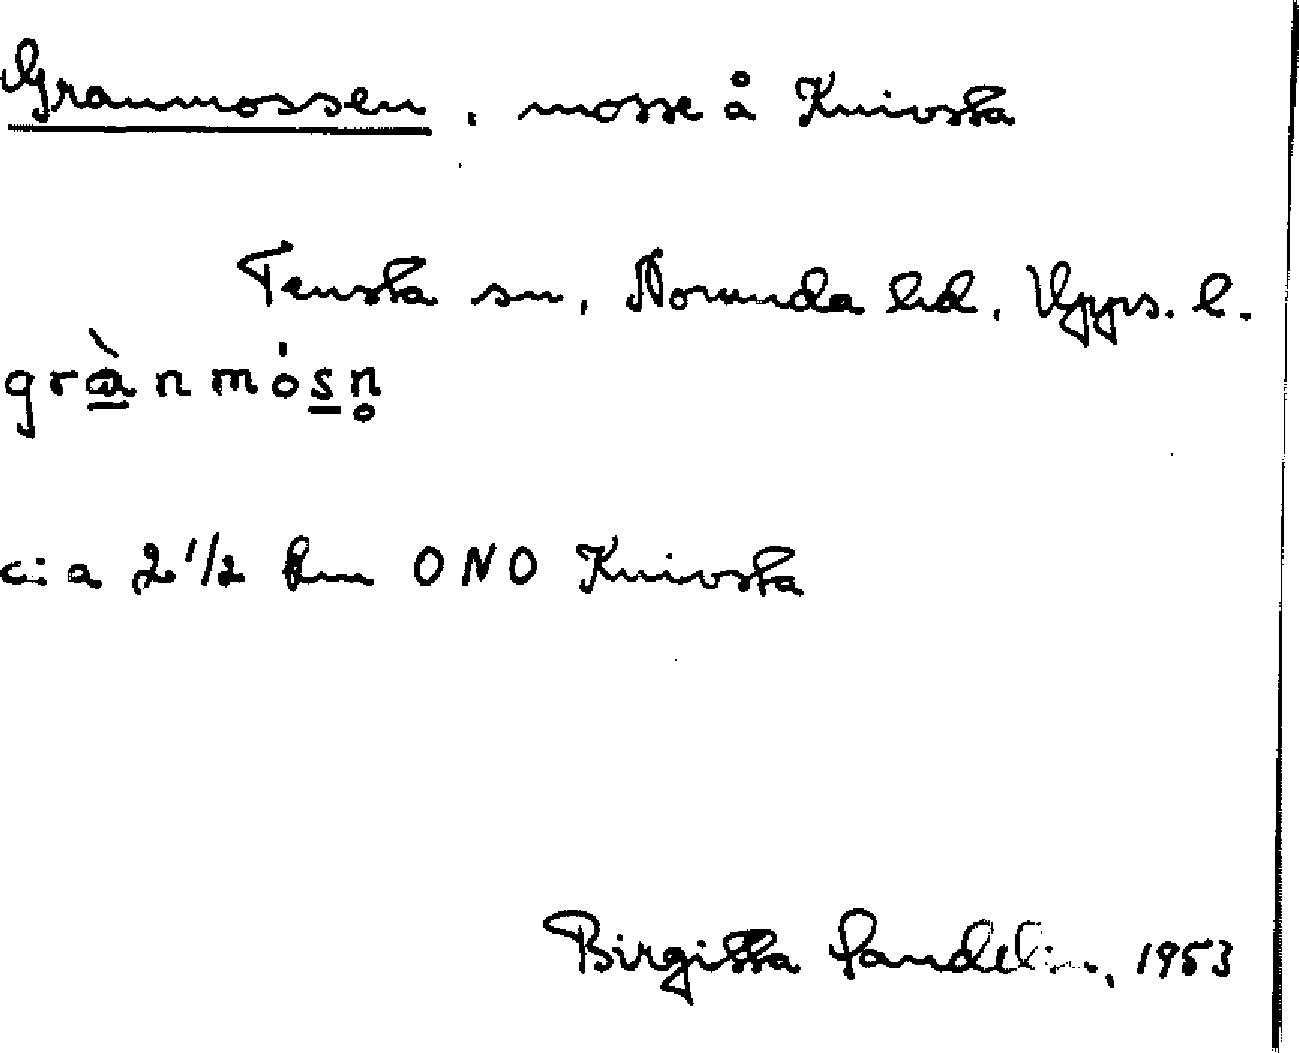 Granmossen, mosse å Knivsta
Tensta sn, Norunda hd, Upps. l.
grànmósn̥
c:a 2 1/2 km ONO Knivsta
Birgitta Sandelin, 1953